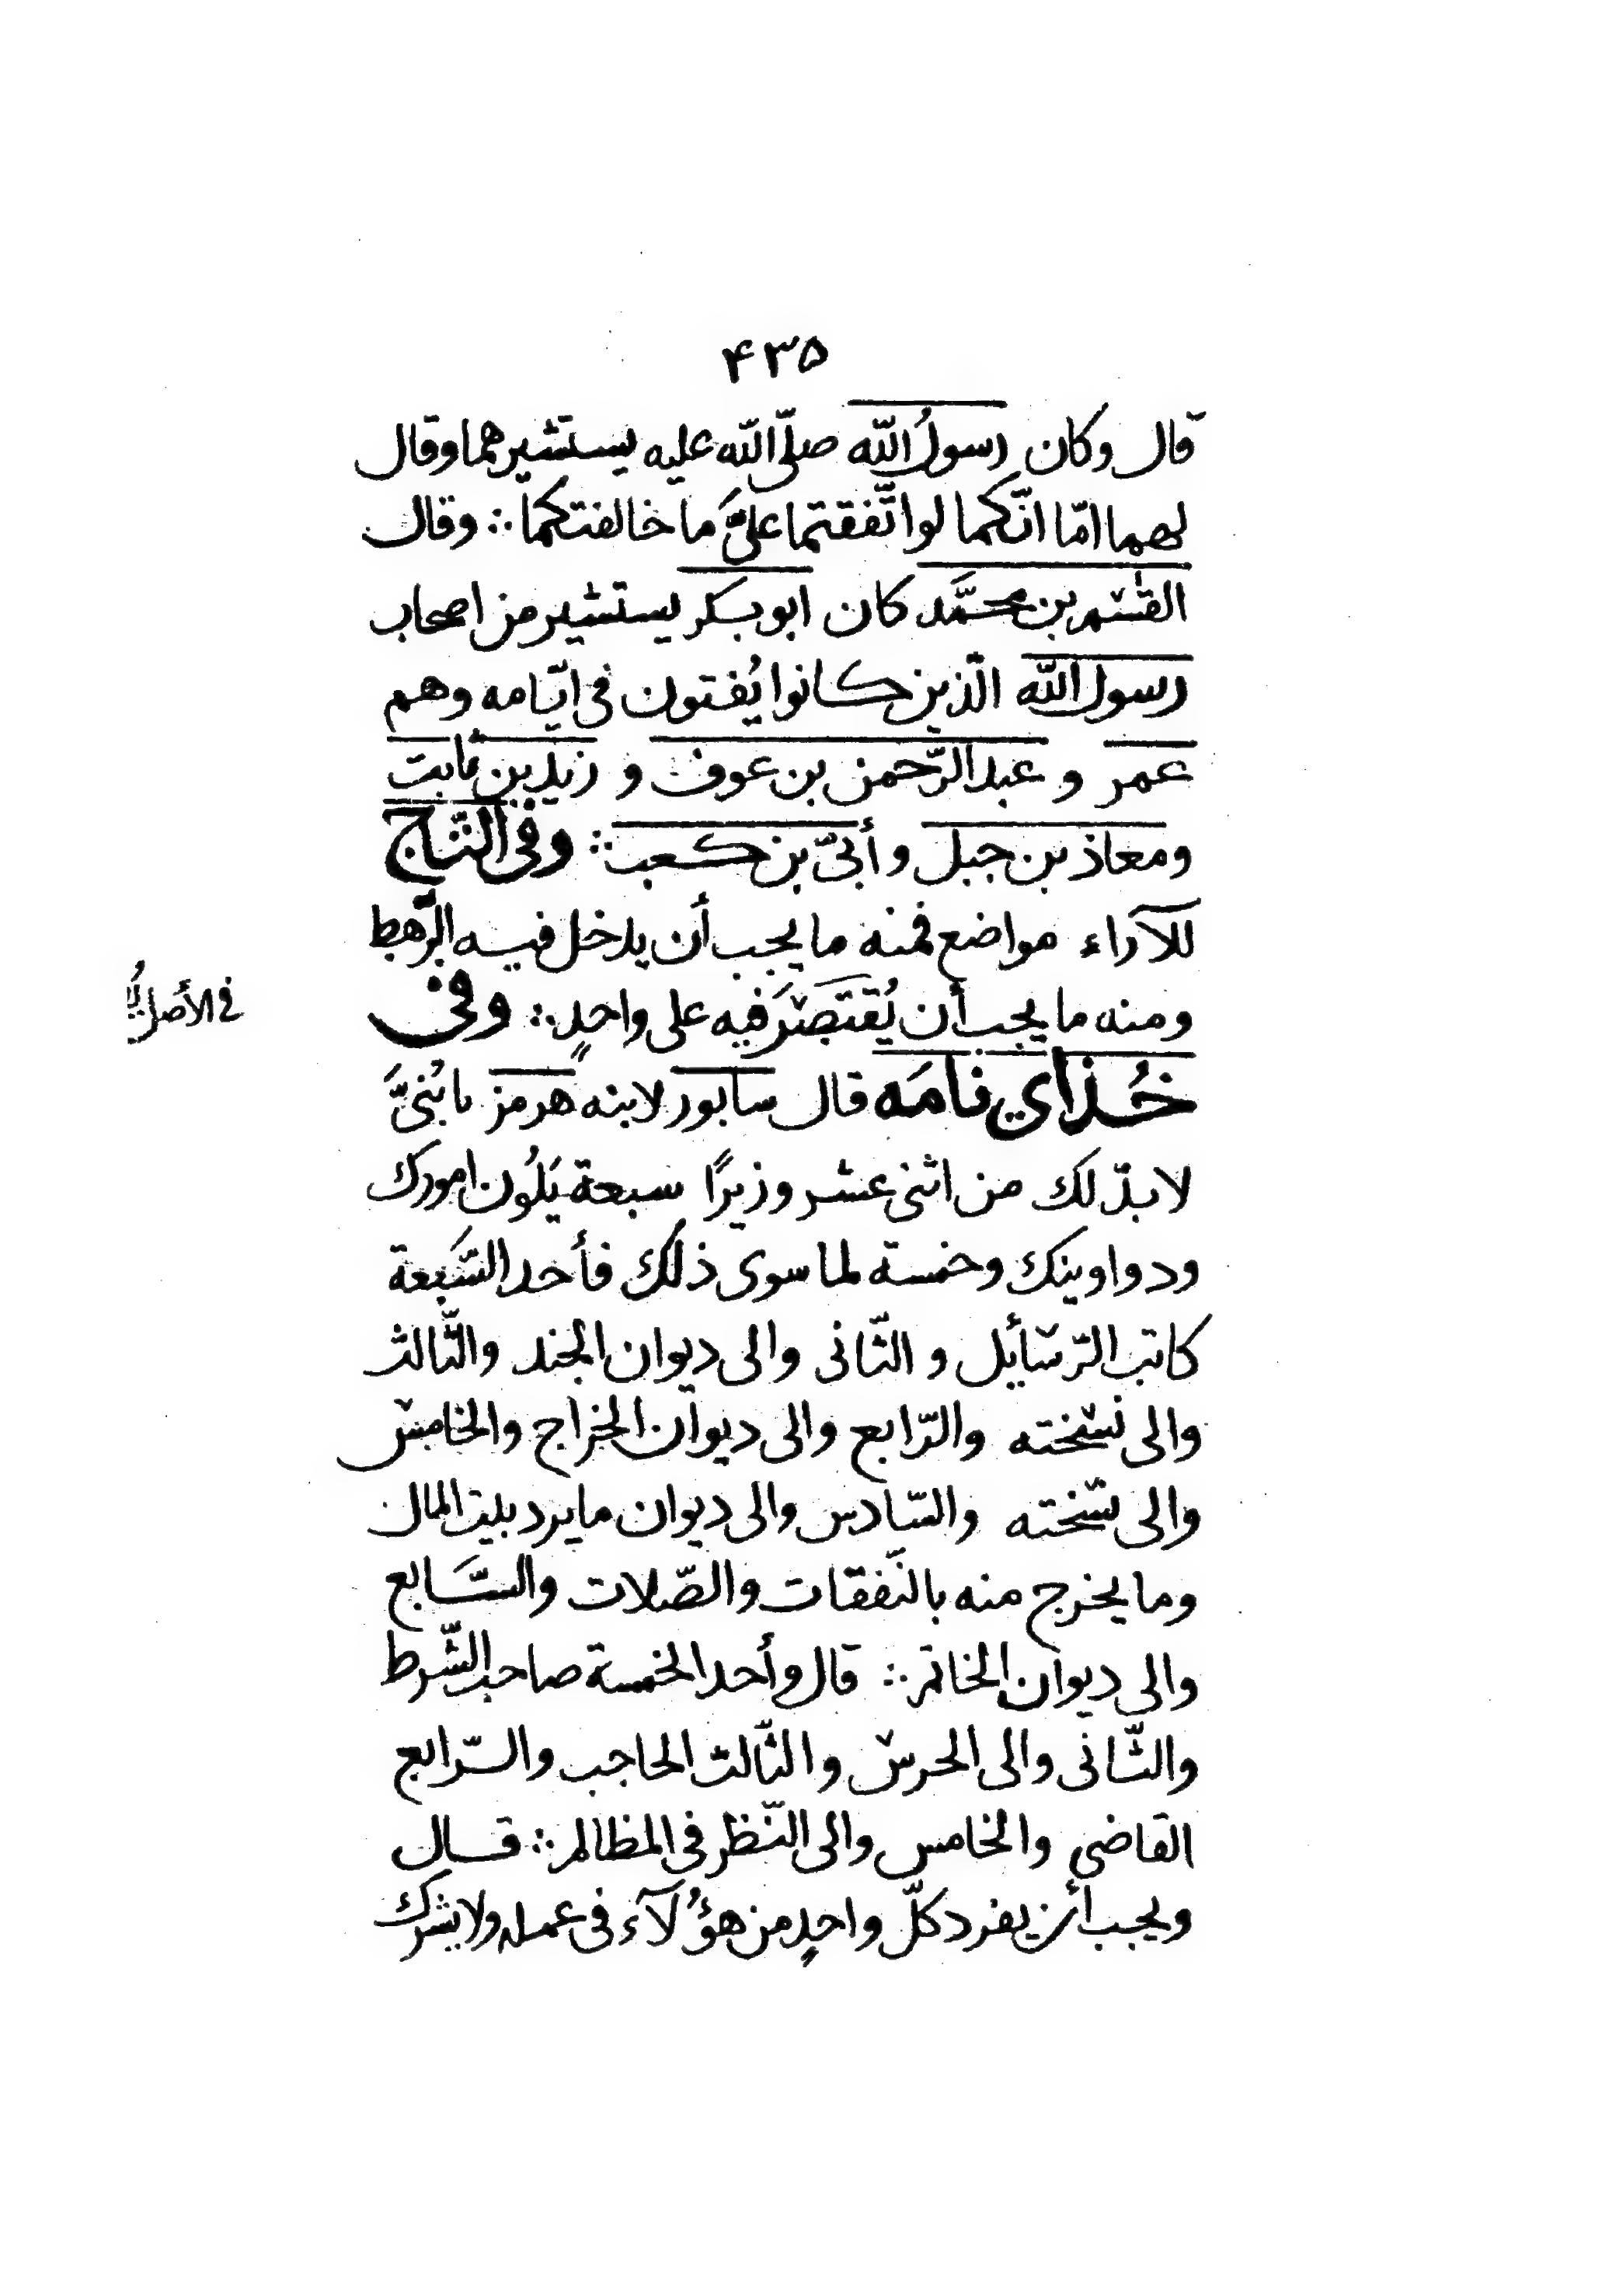 ۴۳۵
قال وكان رسولُ اللّه صلّى اللّه عليه يستشيرهما وقال
لهما امّا انّكما لو اتّفقتما علىَّ ما خالفتكما ∴ وقال
القٰسم بن محمَّد كان ابو بكر يستشير من اصحاب
رسول اللّه الّذين كانوا يُفتون فى ايّامه وهم
عمر و عبد الرّحمن بن عوف و زيد بن ثابت
ومعاذ بن جبل و أبىّ بن كعب ∴ وفى التّاج
للآراء مواضع فمنه ما يجب أن يدخل فيه الرّهط
ومنه ما يجب أن يُقتَصَرَ فيه على واحدٍ ∴ وفى
فى الأصل
خُذاي نامَه قال سابور لابنه هرمز يا بُنىَّ
لا بدّ لك من اثنى عشر وزيرًا سبعة يَلُون امورك
ودواوينك وخمسة لما سوى ذلك فأحد السَّبعة
كاتب الرّسأيل و الثّانى والى ديوان الجند والثّالث
والى نسخته والرّابع والى ديوان الخراج والخامس
والى نسخته والسّادس والى ديوان ما يرد بيت المال
وما يخرج منه بالنّفقات والصّلات والسَّابع
والى ديوان الخاتم ∴ قال وأحد الخمسة صاحب الشّرط
والثّانى والى الحرس والثّالث الحاجب والرّابع
القاضى والخامس والى النّظر فى المظالم ∴ قال
ويجب أن يفرد كلّ واحدٍ من هؤُلآء فى عمله ولا يشرك